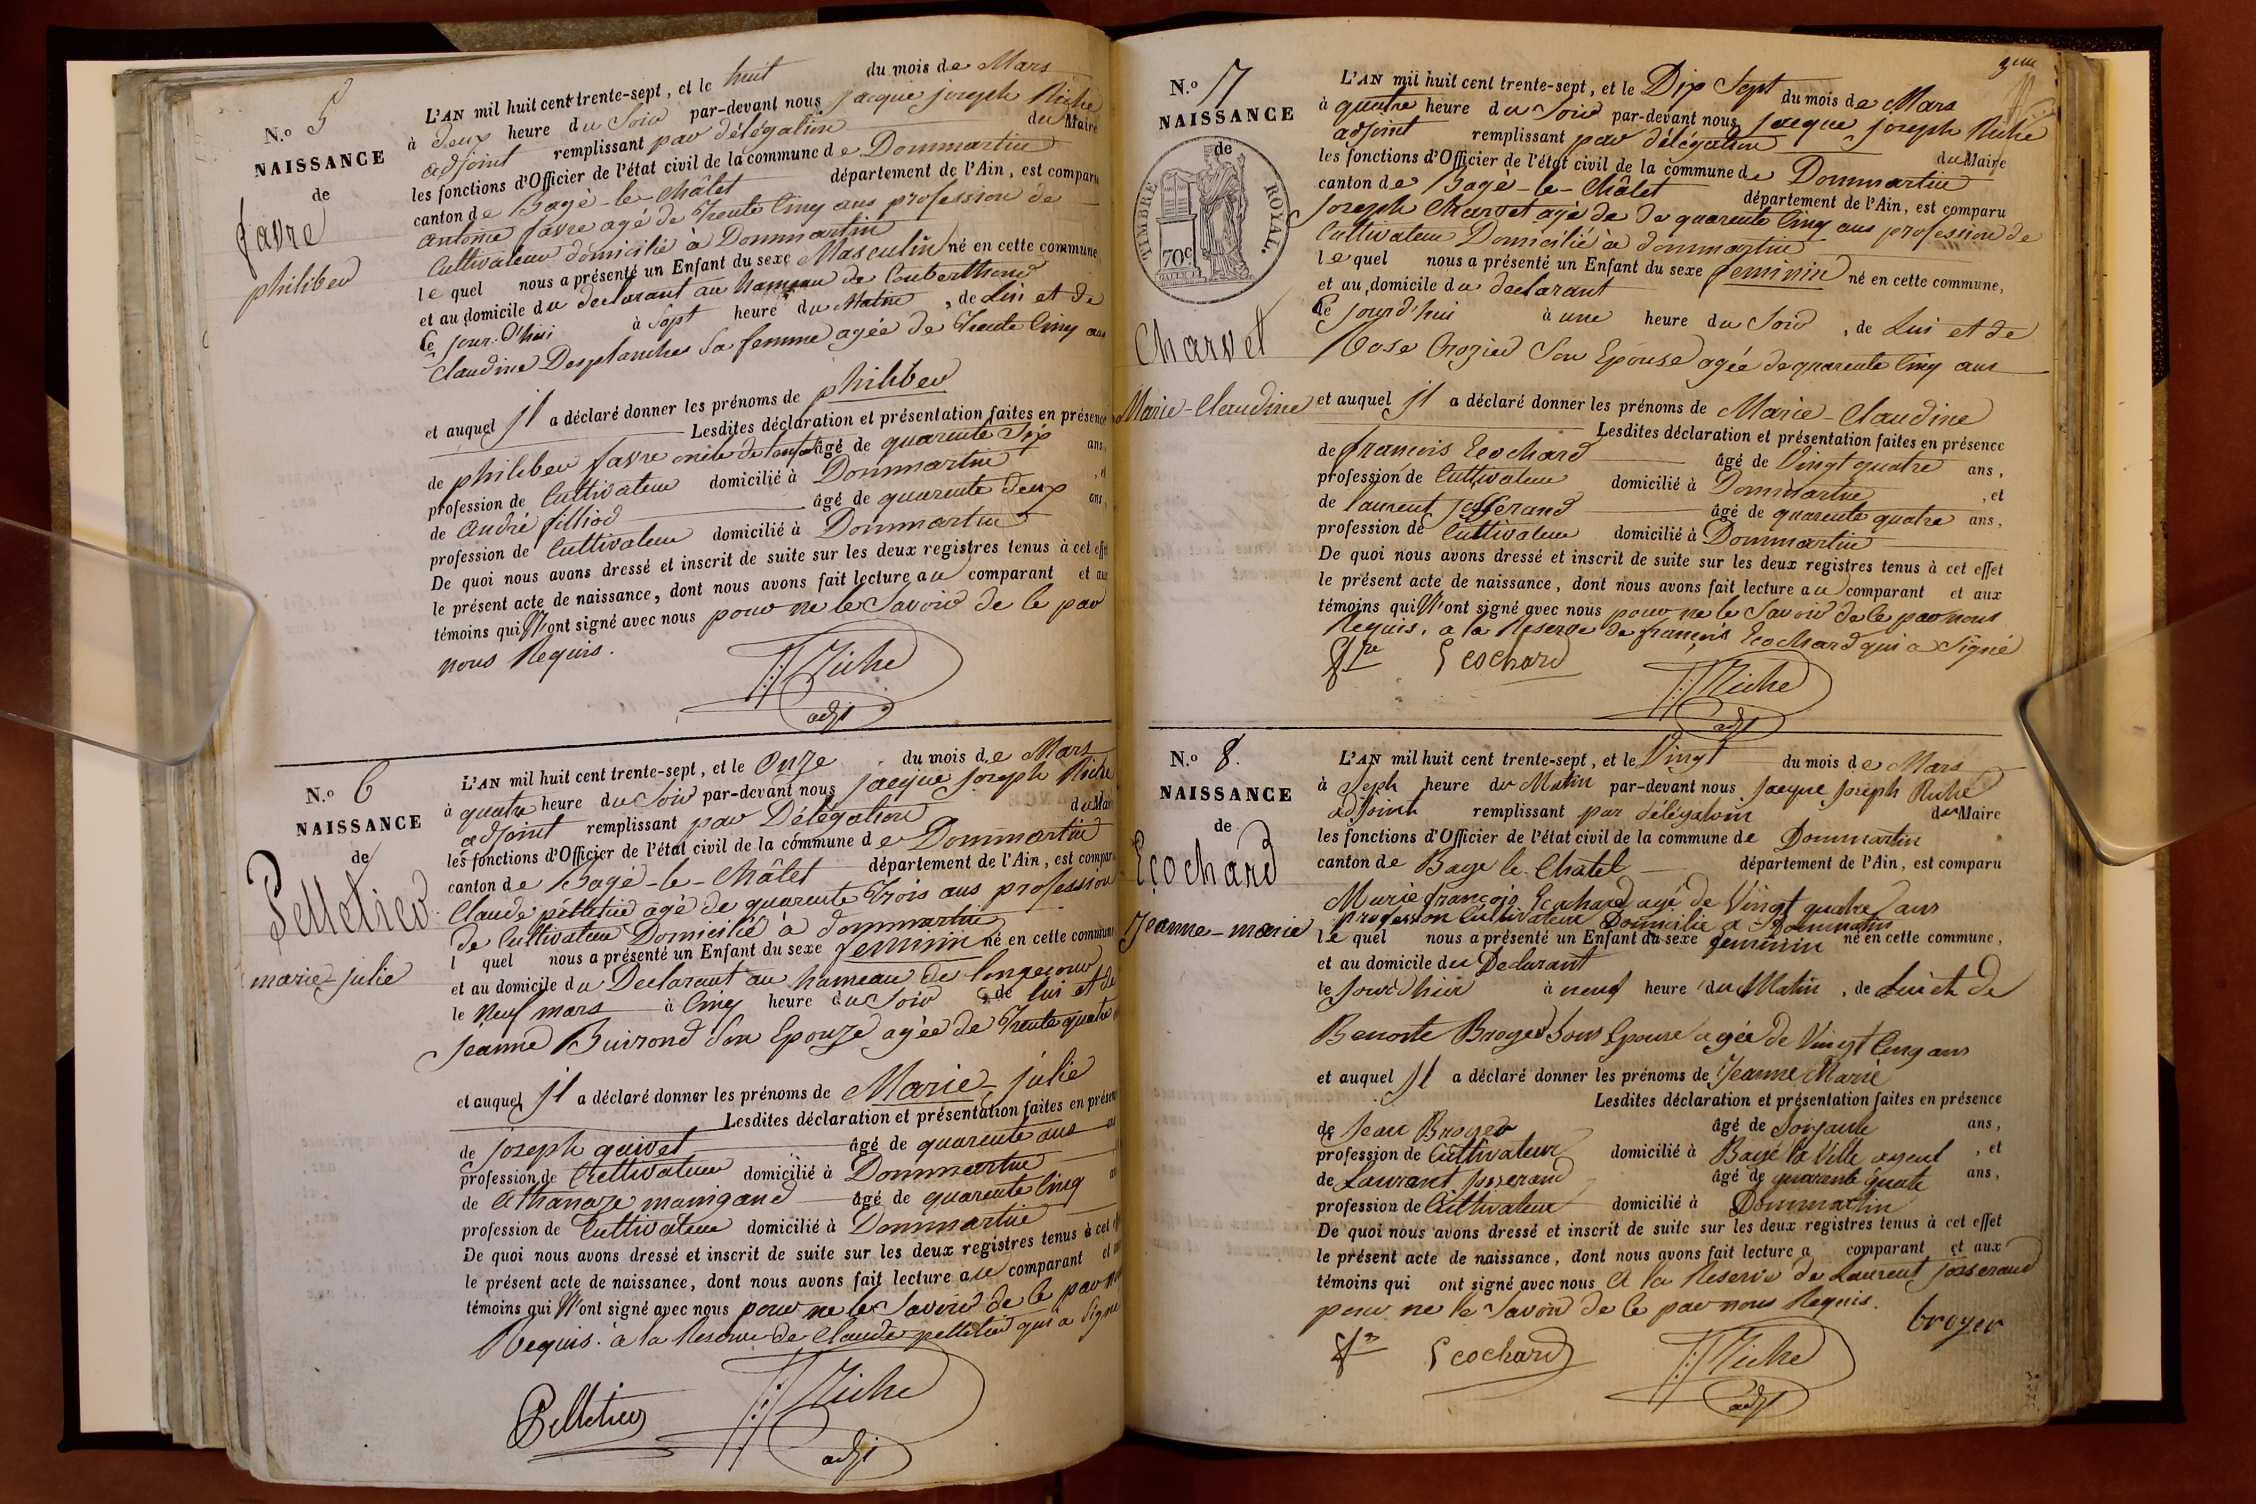 N.º 5
NAISSANCE
de
favre
philiber
L'AN mil huit cent trente-sept, et le huit du mois de Mars
à deux heure du Soir par-devant nous jacque joseph Riche
adjoint remplissant par délégation du Maire
les fonctions d'Officier de l'état civil de la commune de Dommartin
canton de Bagé-le-Châtel département de l'Ain, est comparu
antoine favre agé de Trente Cinq ans profession de
Cultivateur domicilié à Dommartin
lequel nous a présenté un Enfant du sexe Masculin né en cette commune
et au domicile du declarant au hameau de
Ce jour-d'hui à Sept heure du Matin, de Lui et de
Claudine Desplanches Sa femme agée de Trente Cinq ans
et auquel jl a déclaré donner les prénoms de philiber
Lesdites déclaration et présentation faites en présence
de philiber favre oncle de lenfant âgé de quarente Six ans,
profession de Cultivateur domicilié à Dommartin, et
de andré filliod âgé de quarente deux ans,
profession de Cultivateur domicilié à Dommartin
De quoi nous avons dressé et inscrit de suite sur les deux registres tenus à cet effet
le présent acte de naissance, dont nous avons fait lecture au comparant et aux
témoins qui N'ont signé avec nous pour ne le Savoir de le par
nous Requis.
JJ Riche
adjt
N.º 6
NAISSANCE
de
Pelletier
marie-julie
L'AN mil huit cent trente-sept, et le Onze du mois de Mars
à quatre heure du Soir par-devant nous jacque joseph Riche
adjoint remplissant par Délégation du Maire
les fonctions d'Officier de l'état civil de la commune de Dommartin
canton de Bagé-le-Châtel département de l'Ain, est comparu
Claude pelletier agé de quarente Trois ans profession
de Cultivateur Domicilié à dommartin
l quel nous a présenté un Enfant du sexe feminin né en cette commune
et au domicile du Declarant au hameau de longecour
le Neuf mars à Cinq heure du Soir, de lui et de
jeanne Buirond Son Epouze agée de Trente quatre
et auquel jl a déclaré donner les prénoms de Marie-julie
Lesdites déclaration et présentation faites en présence
de joseph quivet âgé de quarente ans
profession de Cultivateur domicilié à Dommartin
de athanaze manigand âgé de quarente Cinq
profession de Cultivateur domicilié à Dommartin
De quoi nous avons dressé et inscrit de suite sur les deux registres tenus à cet
le présent acte de naissance, dont nous avons fait lecture au comparant et
témoins qui N'ont signé avec nous pour ne le Savoir de le par
Requis. à la Reserve de Claude pelletier qui a Signé
JJ Riche
adjt
Pelletier
3eme
N.º 7
NAISSANCE
de
TIMBRE ROYAL.
70c
Charvet
Marie-Claudine
L'AN mil huit cent trente-sept, et le Dix Sept du mois de Mars
à quatre heure du Soir par-devant nous jacque joseph Riche
adjoint remplissant par délégation du Maire
les fonctions d'Officier de l'état civil de la commune de Dommartin
canton de Bagé-le-Châtel département de l'Ain, est comparu
joseph Charvet agé de de quarente Cinq ans profession de
Cultivateur Domicilié à dommartin
lequel nous a présenté un Enfant du sexe feminin né en cette commune,
et au domicile du declarant
Ce jourd'hui à une heure du Soir, de Lui et de
Rose Crozier Son Epouse agée de quarente Cinq ans
et auquel jl a déclaré donner les prénoms de Marie-Claudine
Lesdites déclaration et présentation faites en présence
de françois Ecochard âgé de Vingt quatre ans,
profession de Cultivateur domicilié à Dommartin, et
de laurent josserand âgé de quarente quatre ans,
profession de Cultivateur domicilié à Dommartin
De quoi nous avons dressé et inscrit de suite sur les deux registres tenus à cet effet
le présent acte de naissance, dont nous avons fait lecture au comparant et aux
témoins qui N'ont signé avec nous pour ne le Savoir de le par nous
Requis. a la Reserve de françois Ecochard qui a Signé
Ecochard
JJ Riche
adjt
N.º 8.
NAISSANCE
de
Ecochard
Jeanne-marie
L'AN mil huit cent trente-sept, et le Vingt du mois de Mars
à Seph heure du Matin par-devant nous Jacque Joseph Riche
adjoint remplissant par délégation du Maire
les fonctions d'Officier de l'état civil de la commune de Dommartin
canton de Bage le Chatel département de l'Ain, est comparu
Marie françois Ecochard agé de Vingt quatre ans
profession Cultivateur Domicilie a Dommartin
le quel nous a présenté un Enfant du sexe feminin né en cette commune,
et au domicile du Declarant
le Jourdhui à neuf heure du Matin, de Lui et de
Benoite Broyer Sons Epouse agée de Vingt Cinq ans
et auquel Jl a déclaré donner les prénoms de Jeanne Marie
Lesdites déclaration et présentation faites en présence
de Jean Broyer âgé de Soixante ans,
profession de Cultivateur domicilié à Bagé la Ville ayeul, et
de Laurant josserand âgé de quarante quate ans,
profession de Cultivateur domicilié à Dommartin
De quoi nous avons dressé et inscrit de suite sur les deux registres tenus à cet effet
le présent acte de naissance, dont nous avons fait lecture a comparant et aux
témoins qui ont signé avec nous a la Reserve de Laurent josserand
pour ne le Savoir de le par nous Requis.
broyer
Ecochard
JJ Riche
adjt